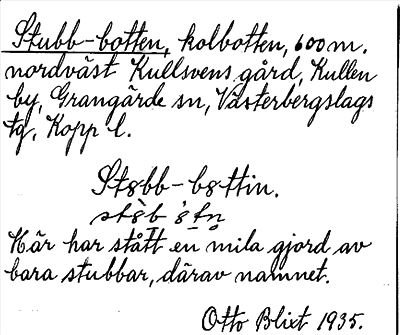 Stubb-botten, kolbotten, 600 m.
nordväst Kullsvens gård, Kullen
by, Grangärde sn, Västerbergslags
tg, Kopp l.
Stɞbb-bɞttin.
Här har stått en mila gjord av
bara stubbar, därav namnet.
Otto Blixt 1935.